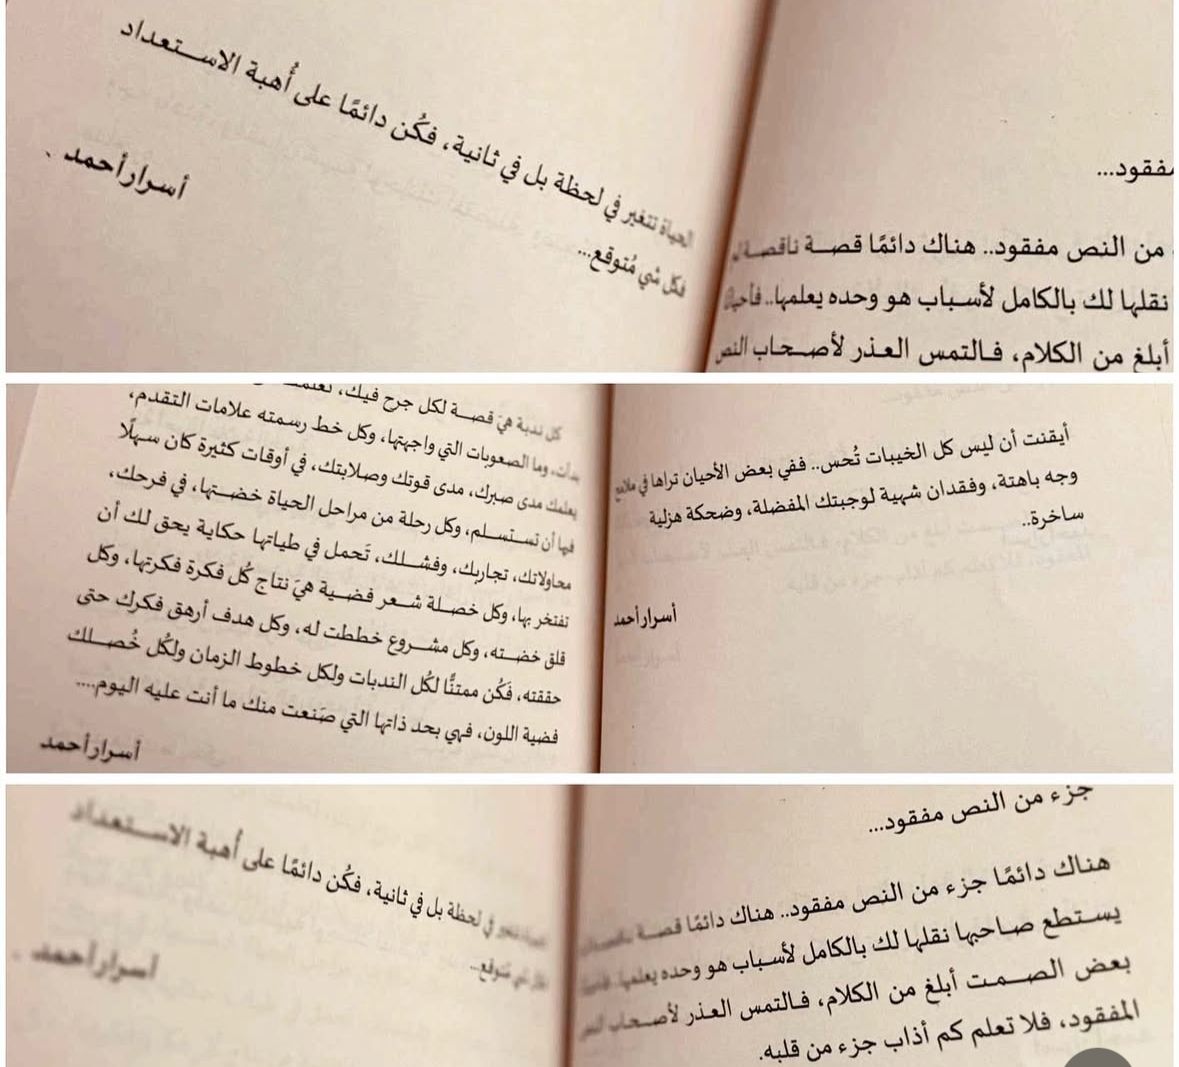 مفقود...
من النص مفقود.. هناك دائمًا قصة ناقصة
نقلها لك بالكامل لأسباب هو وحده يعلمها..
أبلغ من الكلام، فالتمس العذر لأصحاب النص
الحياة تتغير في لحظة بل في ثانية، فكُن دائمًا على أُهبة الاستعداد
فكل شي مُتوقع...
أسرار أحمد
أيقنت أن ليس كل الخيبات تُحس.. ففي بعض الأحيان تراها في ملامح
وجه باهتة، وفقدان شهية لوجبتك المفضلة، وضحكة هزلية
ساخرة..
أسرار أحمد
كل ندبة هيَ قصة لكل جرح فيك،
وما الصعوبات التي واجهتها، وكل خط رسمته علامات التقدم،
يعلمك مدى صبرك، مدى قوتك وصلابتك، في أوقات كثيرة كان سهلًا
فيها أن تستسلم، وكل رحلة من مراحل الحياة خضتها، في فرحك،
محاولاتك، تجاربك، وفشلك، تَحمل في طياتها حكاية يحق لك أن
تفتخر بها، وكل خصلة شعر فضية هيَ نتاج كُل فكرة فكرتها، وكل
قلق خضته، وكل مشروع خططت له، وكل هدف أرهق فكرك حتى
حققته، فكُن ممتنًّا لكُل الندبات ولكل خطوط الزمان ولكُل خُصلك
فضية اللون، فهي بحد ذاتها التي صَنعت منك ما أنت عليه اليوم....
أسرار أحمد
جزء من النص مفقود...
هناك دائمًا جزء من النص مفقود.. هناك دائمًا قصة
يستطع صاحبها نقلها لك بالكامل لأسباب هو وحده يعلمها..
بعض الصمت أبلغ من الكلام، فالتمس العذر لأصحاب النص
المفقود، فلا تعلم كم أذاب جزء من قلبه.
في لحظة بل في ثانية، فكُن دائمًا على أُهبة الاستعداد
شي مُتوقع...
أسرار أحمد